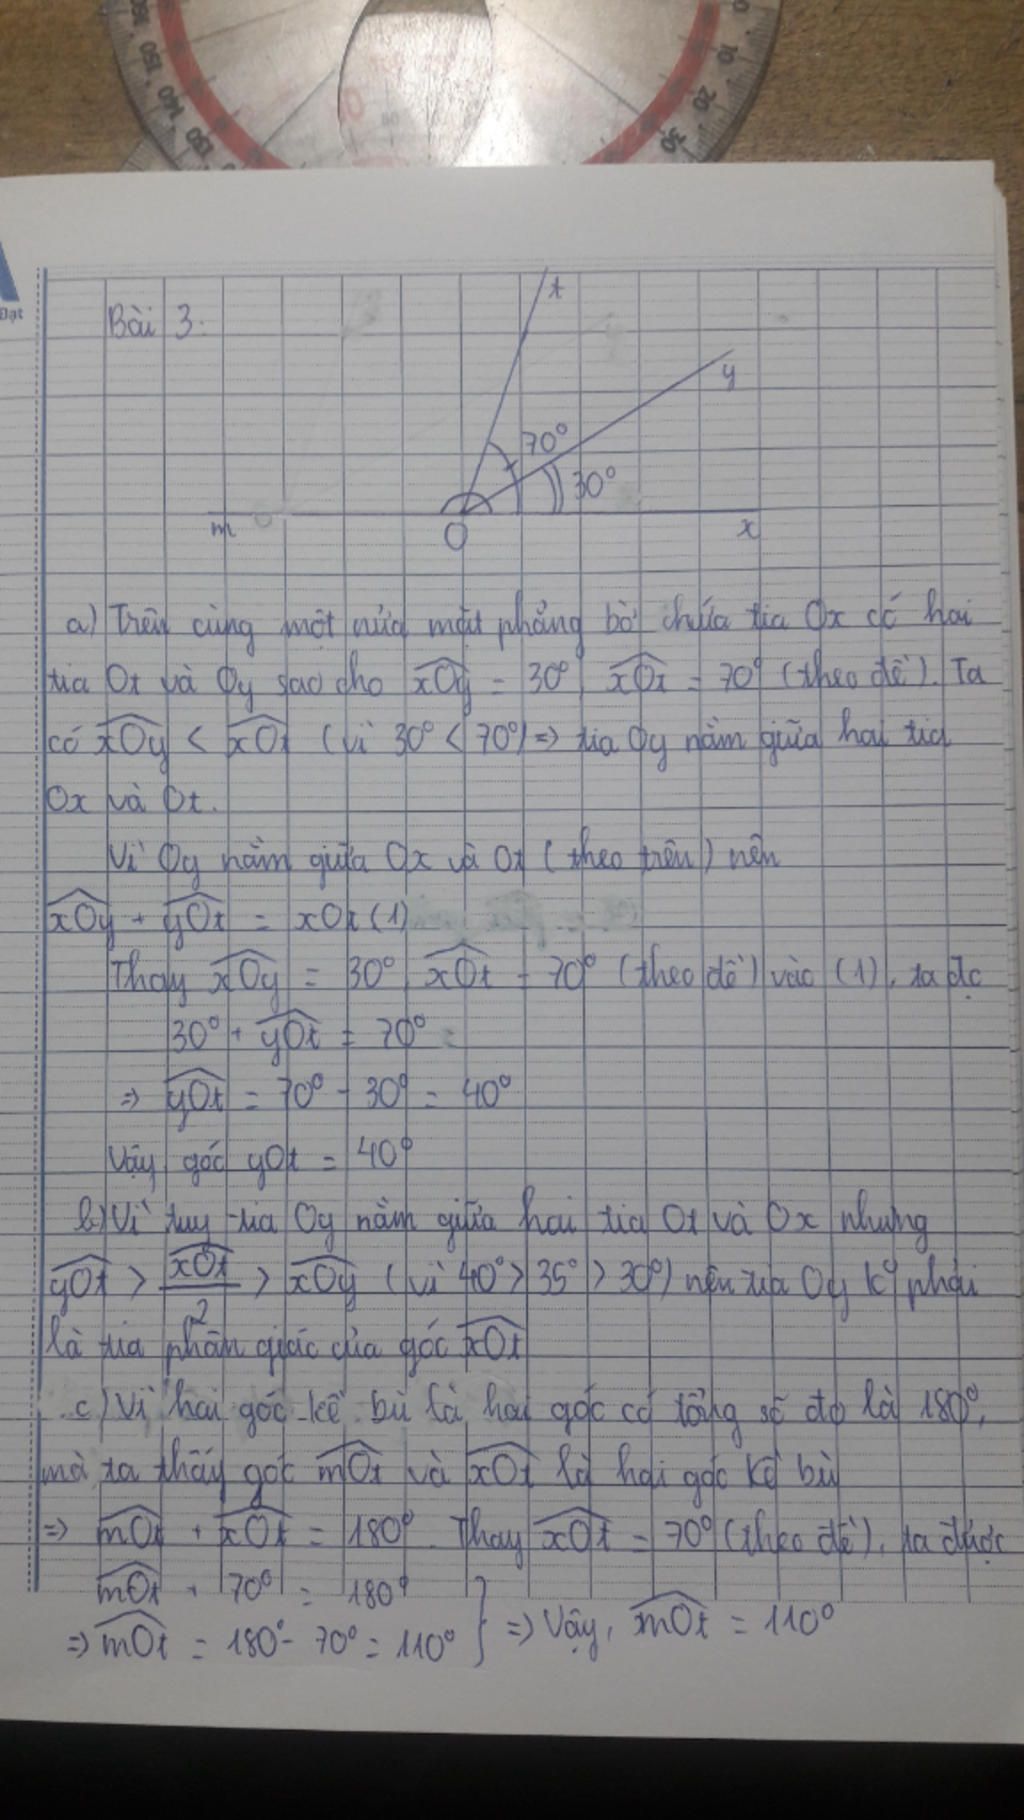 150
140
130
10
20
30
Đạt
Bài 3:
t
y
70°
30°
m
O
x
a) Trên cùng một nửa mặt phẳng bờ chứa tia Ox có hai
tia Ot và Oy sao cho xOy = 30°, xOt = 70° (theo đề). Ta
có xOy < xOt (vì 30° < 70°) => tia Oy nằm giữa hai tia
Ox và Ot.
Vì Oy nằm giữa Ox và Ot (theo trên) nên
xOy + yOt = xOt (1)
Thay xOy = 30°, xOt = 70° (theo đề) vào (1), ta đc
30° + yOt = 70°
=> yOt = 70° - 30° = 40°
Vậy góc yOt = 40°
b) Vì tuy tia Oy nằm giữa hai tia Ot và Ox nhưng
yOt > xOt/2 > xOy (vì 40° > 35° > 30°) nên tia Oy k° phải
là tia phân giác của góc xOt
c) Vì hai góc kề bù là hai góc có tổng số đo là 180°,
mà ta thấy góc mOt và xOt là hai góc kề bù
=> mOt + xOt = 180°. Thay xOt = 70° (theo đề), ta được
mOt + 70° = 180°
=> mOt = 180° - 70° = 110° } => Vậy, mOt = 110°